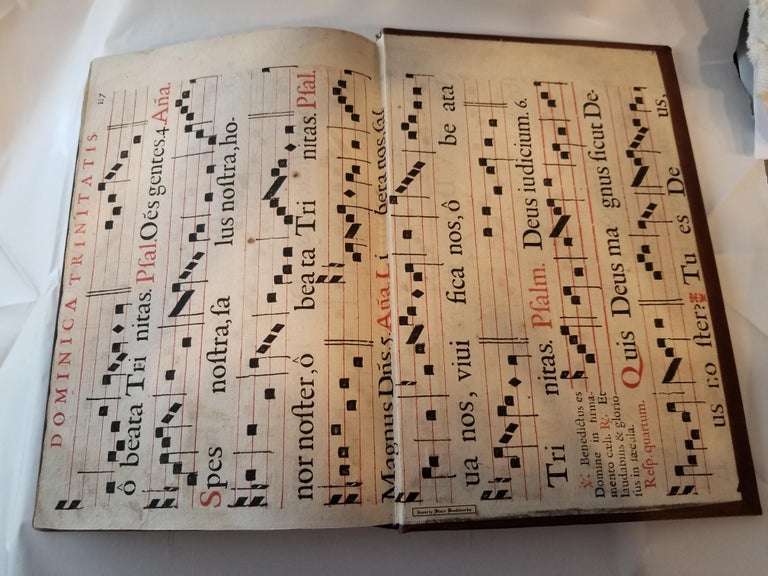 DOMINICA TRINITATIS. 117
ô beata Tri nitas. Psal. Oẽs gentes. 4. Aña.
Spes nostra, sa lus nostra, ho-
nor noster, ô bea ta Tri nitas. Psal.
Magnus Dñs. 5. Aña. Li beranos, sal
ua nos, viui fica nos, ô be ata
Tri nitas. Psalm. Deus iudicium. 6.
℣. Benedictus es
Domine in firma-
mento cæli. ℟. Et
laudabilis & glorio-
sus in sæcula.
Resp. quartum.
Quis Deus ma gnus sicut De-
us no ster? ℣. Tu es De us,
Bound by